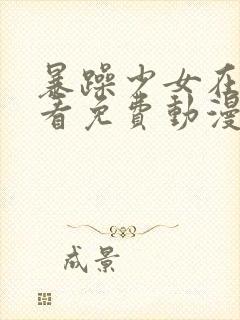 暴躁少女在
看免費動漫
成景